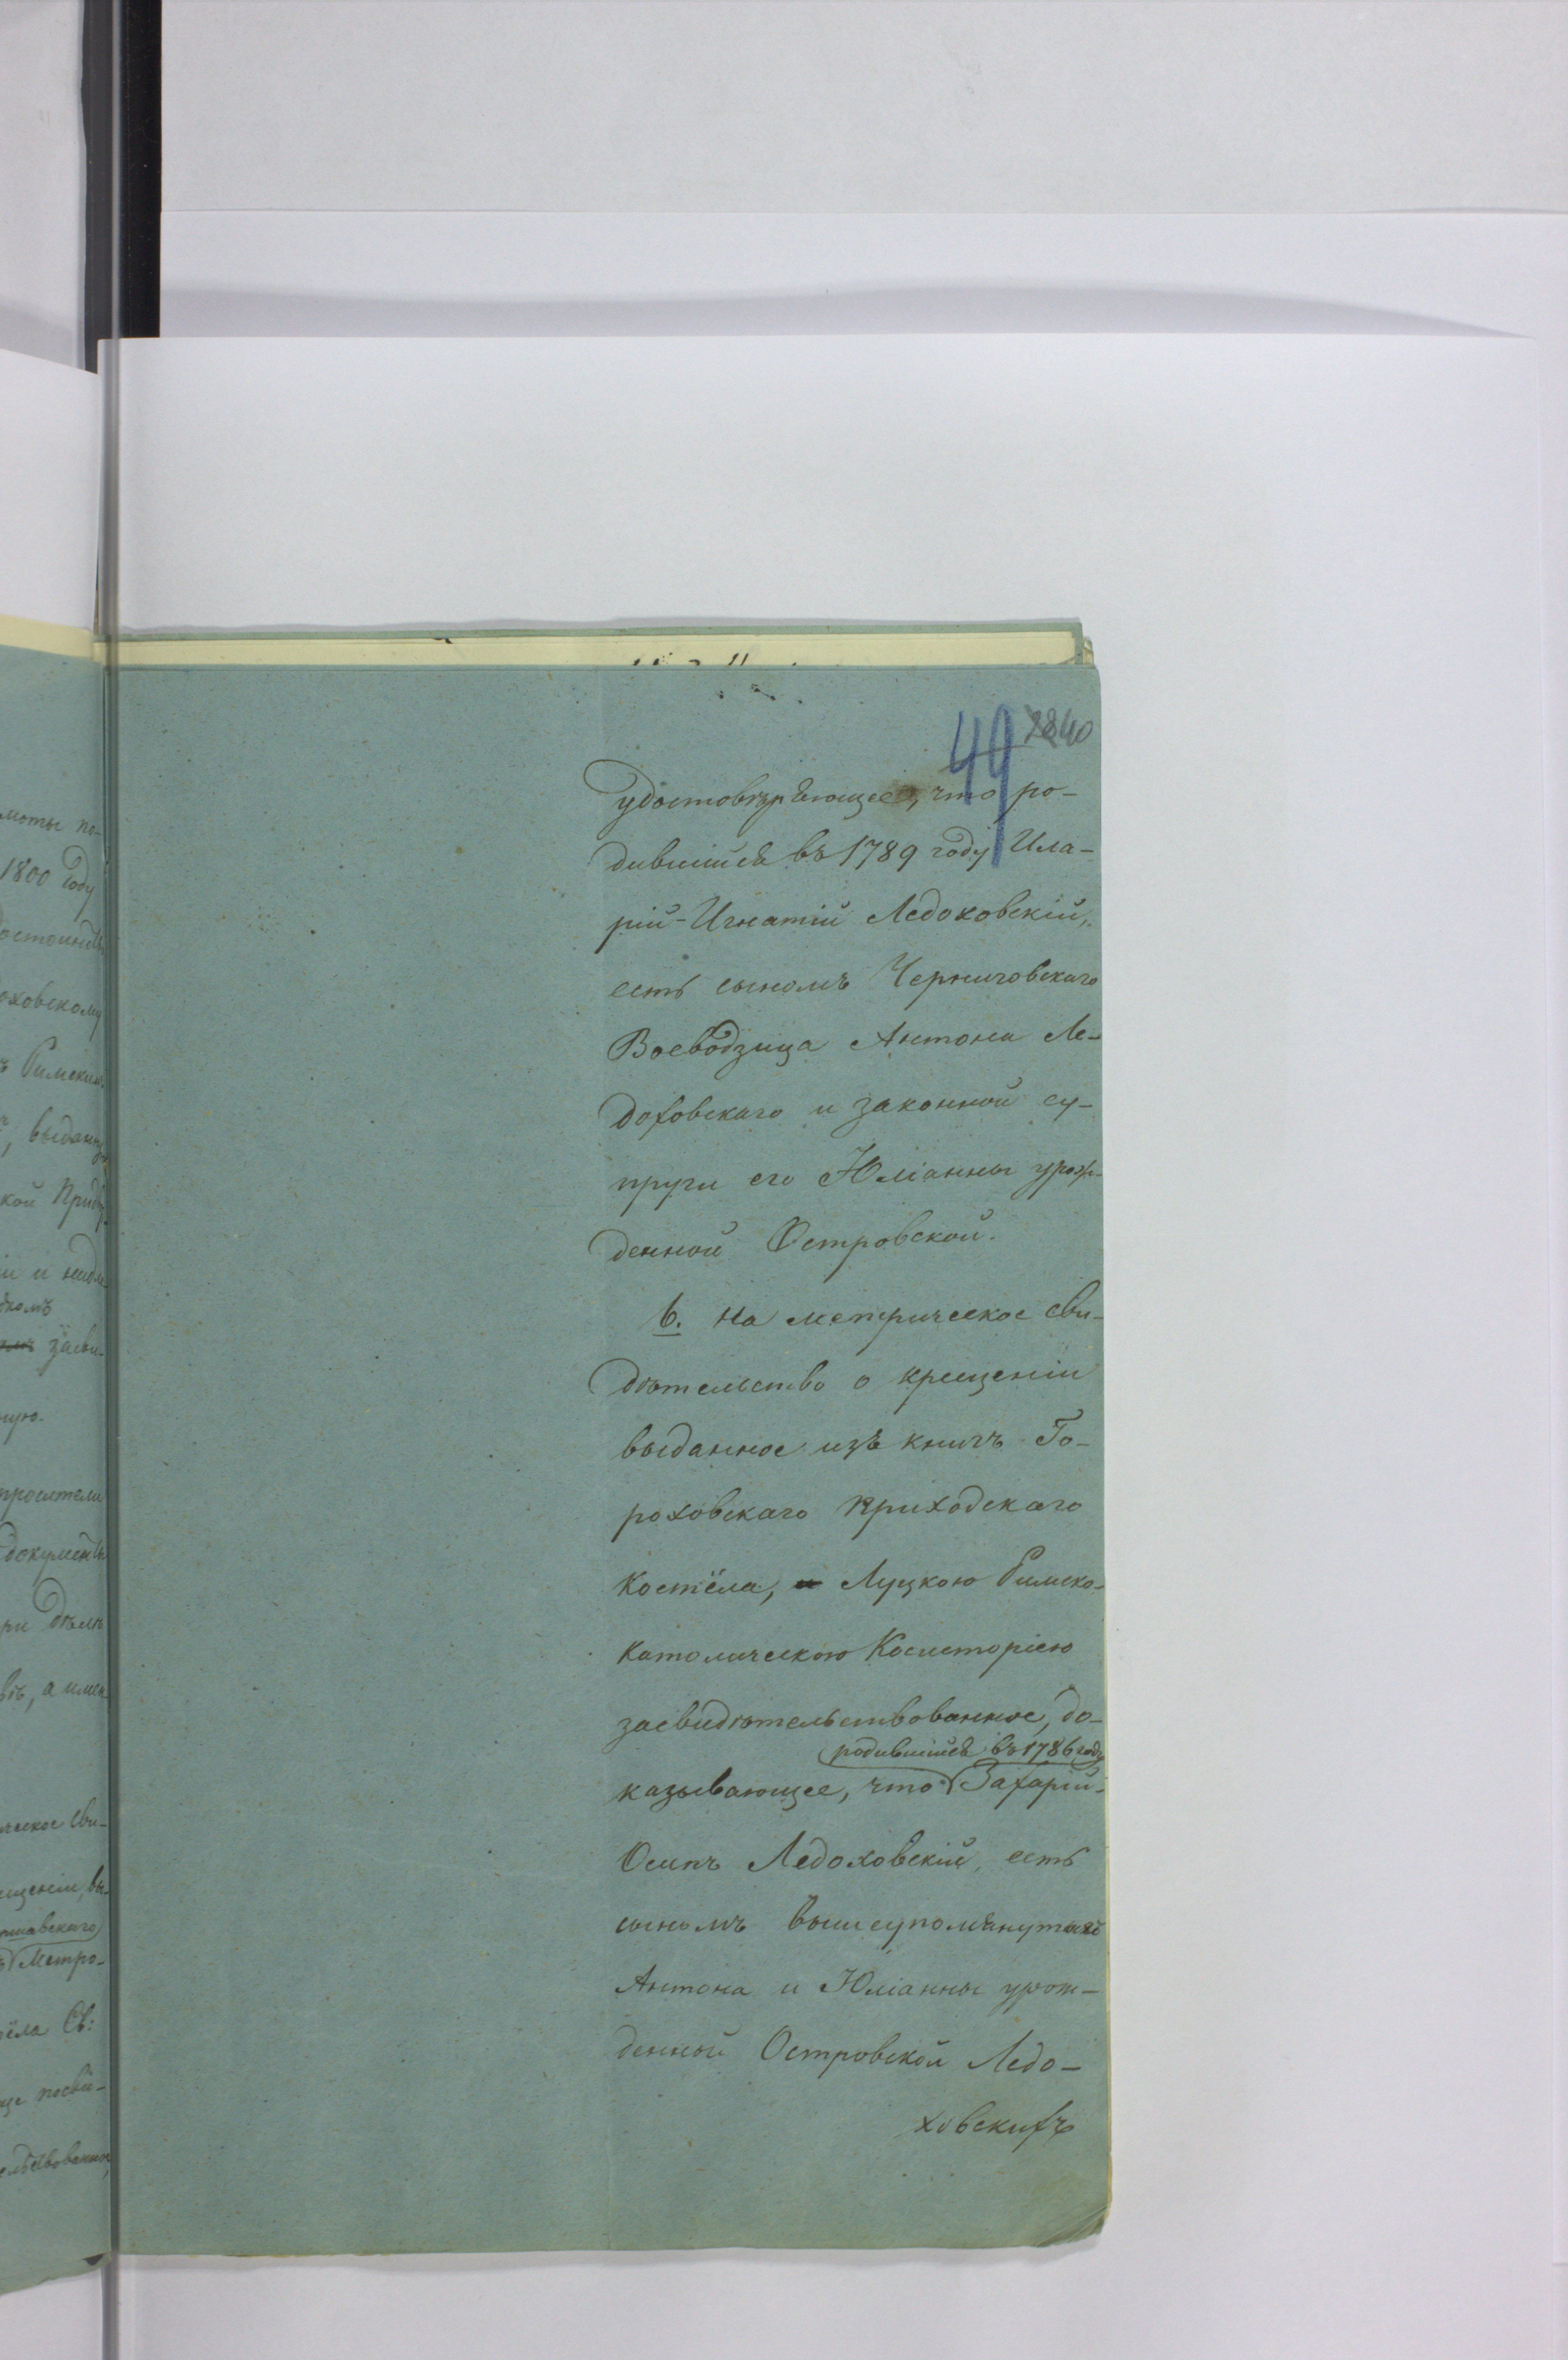 49
40
удостовѣряющее, что ро-
дившійся въ 1789 году Ила-
рій-Игнатій Ледоховскій,
есть сыномъ Черниговскаго
Воеводзица Антона Ле-
доховскаго и законной су-
пруги его Юліанны урож-
денной Островской.
6. На метрическое сви-
дѣтельство о крещеніи
выданное изъ книгъ Го-
роховскаго приходскаго
Костёла, Луцкою Римско-
Католическою Консисторіею
засвидѣтельствованное, до-
родившійся въ 1786 году
казывающее, что Захарій-
Осипъ Ледоховскій, есть
сыномъ вышеупомянутыхъ
Антона и Юліанны урож-
денной Островской Ледо-
ховскихъ
1800 году
оховскому
выданну
кой
просители
документы
ри дѣлѣ
вѣ, а имен
ческое сви-
ещеніи, вы-
ршавскаго
Метро-
ёла Св:
ельствованное,